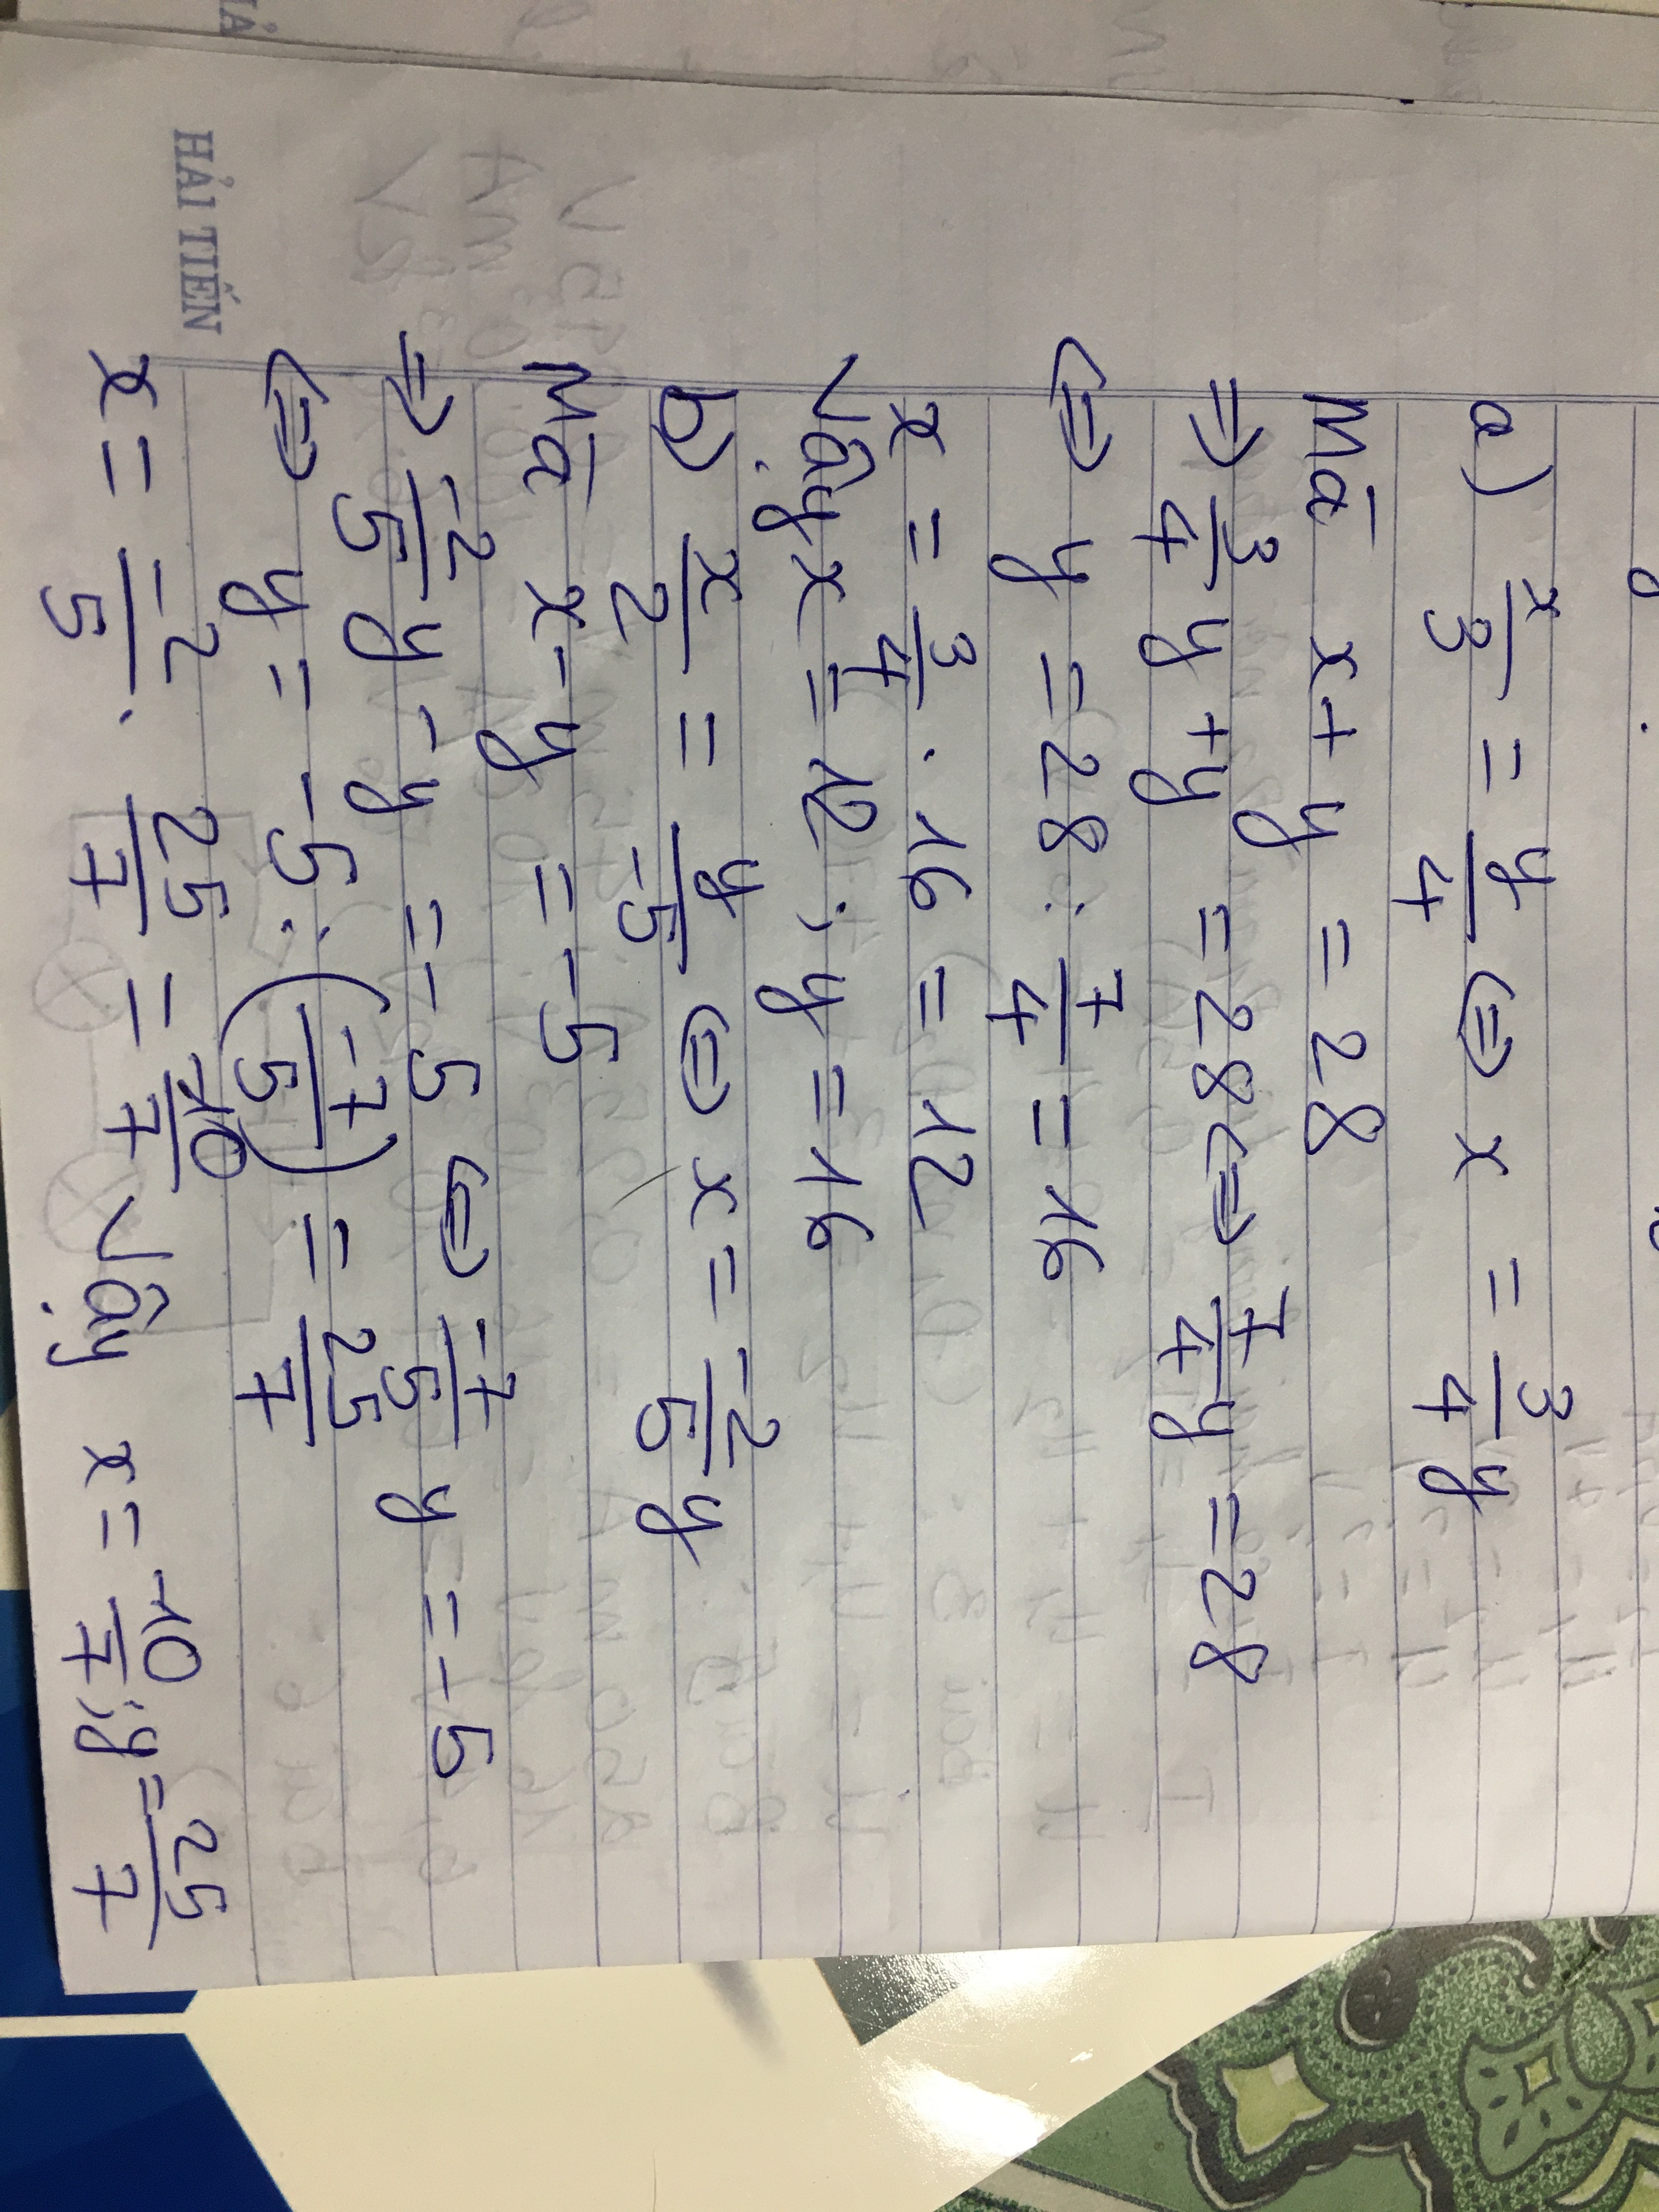 HẢI TIẾN
a) x/3 = y/4 ⇔ x = 3/4 y
Mà x + y = 28
⇒ 3/4 y + y = 28 ⇔ 7/4 y = 28
⇔ y = 28 : 7/4 = 16
x = 3/4 . 16 = 12
Vậy x = 12 ; y = 16
b) x/2 = y/-5 ⇔ x = -2/5 y
Mà x - y = -5
⇒ -2/5 y - y = -5 ⇔ -7/5 y = -5
⇔ y = -5 : (-7/5) = 25/7
x = -2/5 . 25/7 = -10/7 Vậy x = -10/7 ; y = 25/7